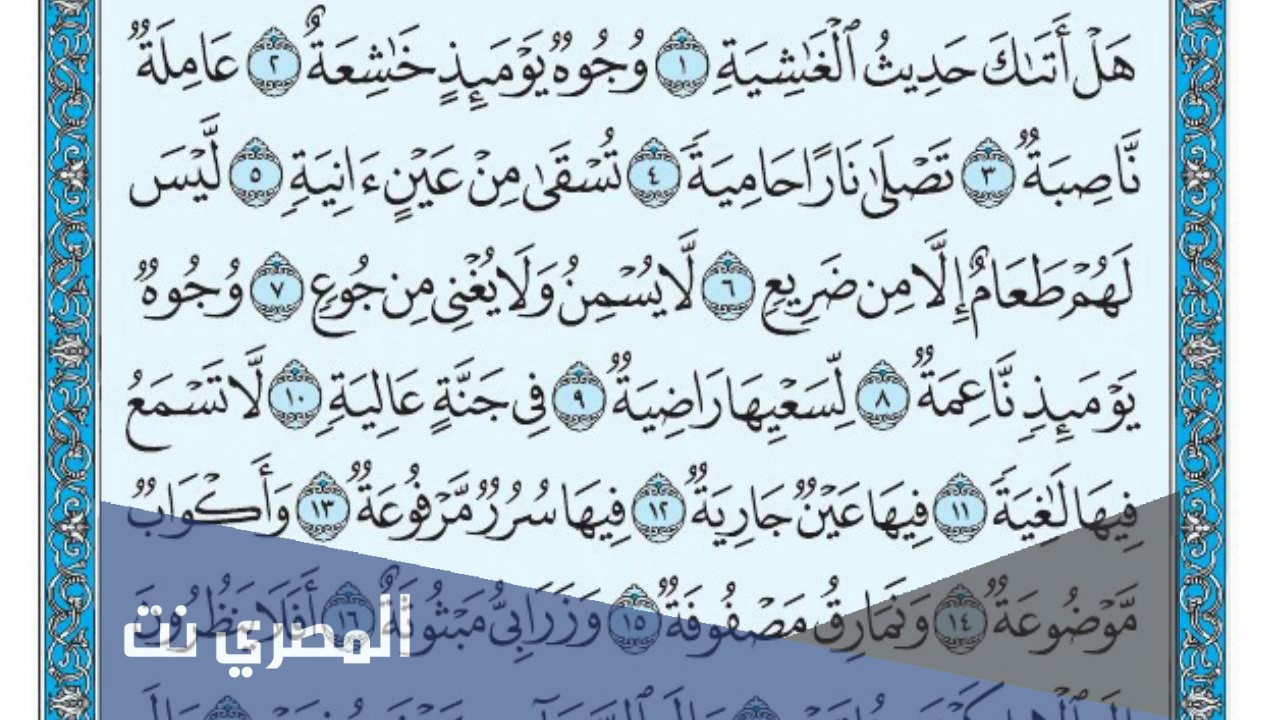 هَلْ أَتَىٰكَ حَدِيثُ ٱلْغَٰشِيَةِ ١ وُجُوهٌ يَوْمَئِذٍ خَٰشِعَةٌ ٢ عَامِلَةٌ
نَّاصِبَةٌ ٣ تَصْلَىٰ نَارًا حَامِيَةً ٤ تُسْقَىٰ مِنْ عَيْنٍ ءَانِيَةٍ ٥ لَّيْسَ
لَهُمْ طَعَامٌ إِلَّا مِن ضَرِيعٍ ٦ لَّا يُسْمِنُ وَلَا يُغْنِى مِن جُوعٍ ٧ وُجُوهٌ
يَوْمَئِذٍ نَّاعِمَةٌ ٨ لِّسَعْيِهَا رَاضِيَةٌ ٩ فِى جَنَّةٍ عَالِيَةٍ ١٠ لَّا تَسْمَعُ
فِيهَا لَٰغِيَةً ١١ فِيهَا عَيْنٌ جَارِيَةٌ ١٢ فِيهَا سُرُرٌ مَّرْفُوعَةٌ ١٣ وَأَكْوَابٌ
مَّوْضُوعَةٌ ١٤ وَنَمَارِقُ مَصْفُوفَةٌ ١٥ وَزَرَابِىُّ مَبْثُوثَةٌ ١٦ أَفَلَا يَنظُرُونَ
المصري نت